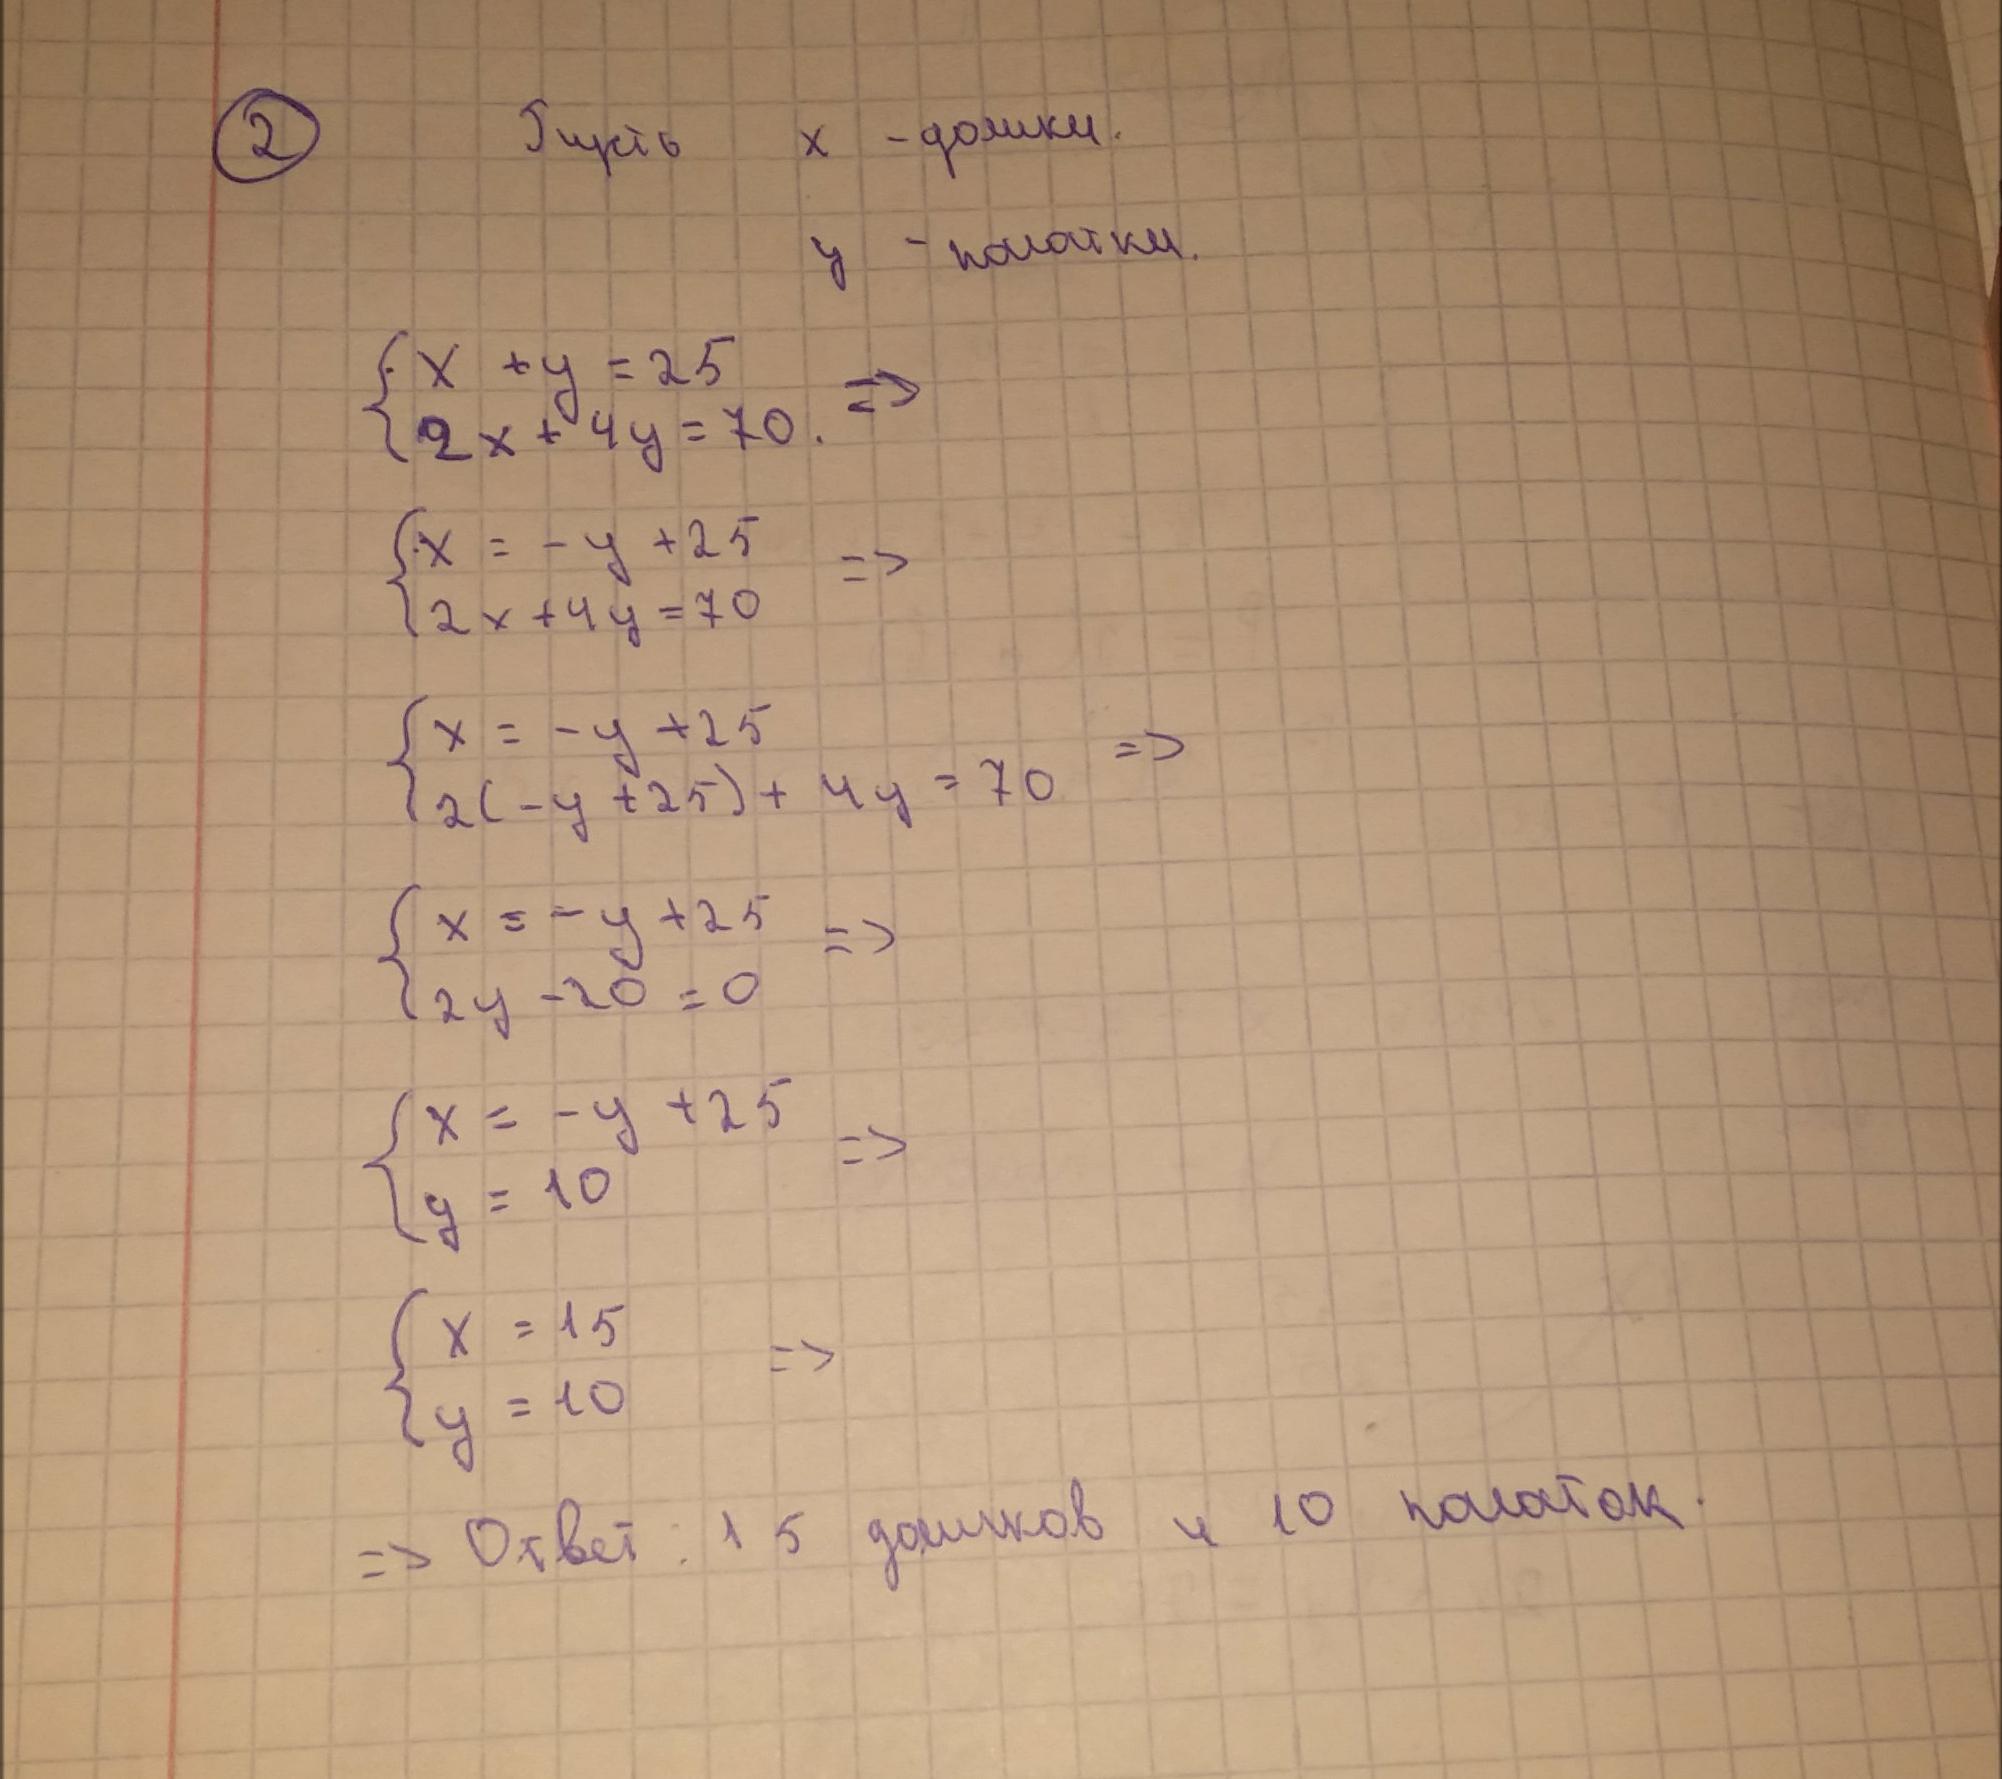 2 Пусть x - домики.
y - палатки.
{x + y = 25
{2x + 4y = 70. =>
{x = -y + 25
{2x + 4y = 70 =>
{x = -y + 25
{2(-y + 25) + 4y = 70 =>
{x = -y + 25
{2y - 20 = 0 =>
{x = -y + 25
{y = 10 =>
{x = 15
{y = 10 =>
=> Ответ: 15 домиков и 10 палаток.